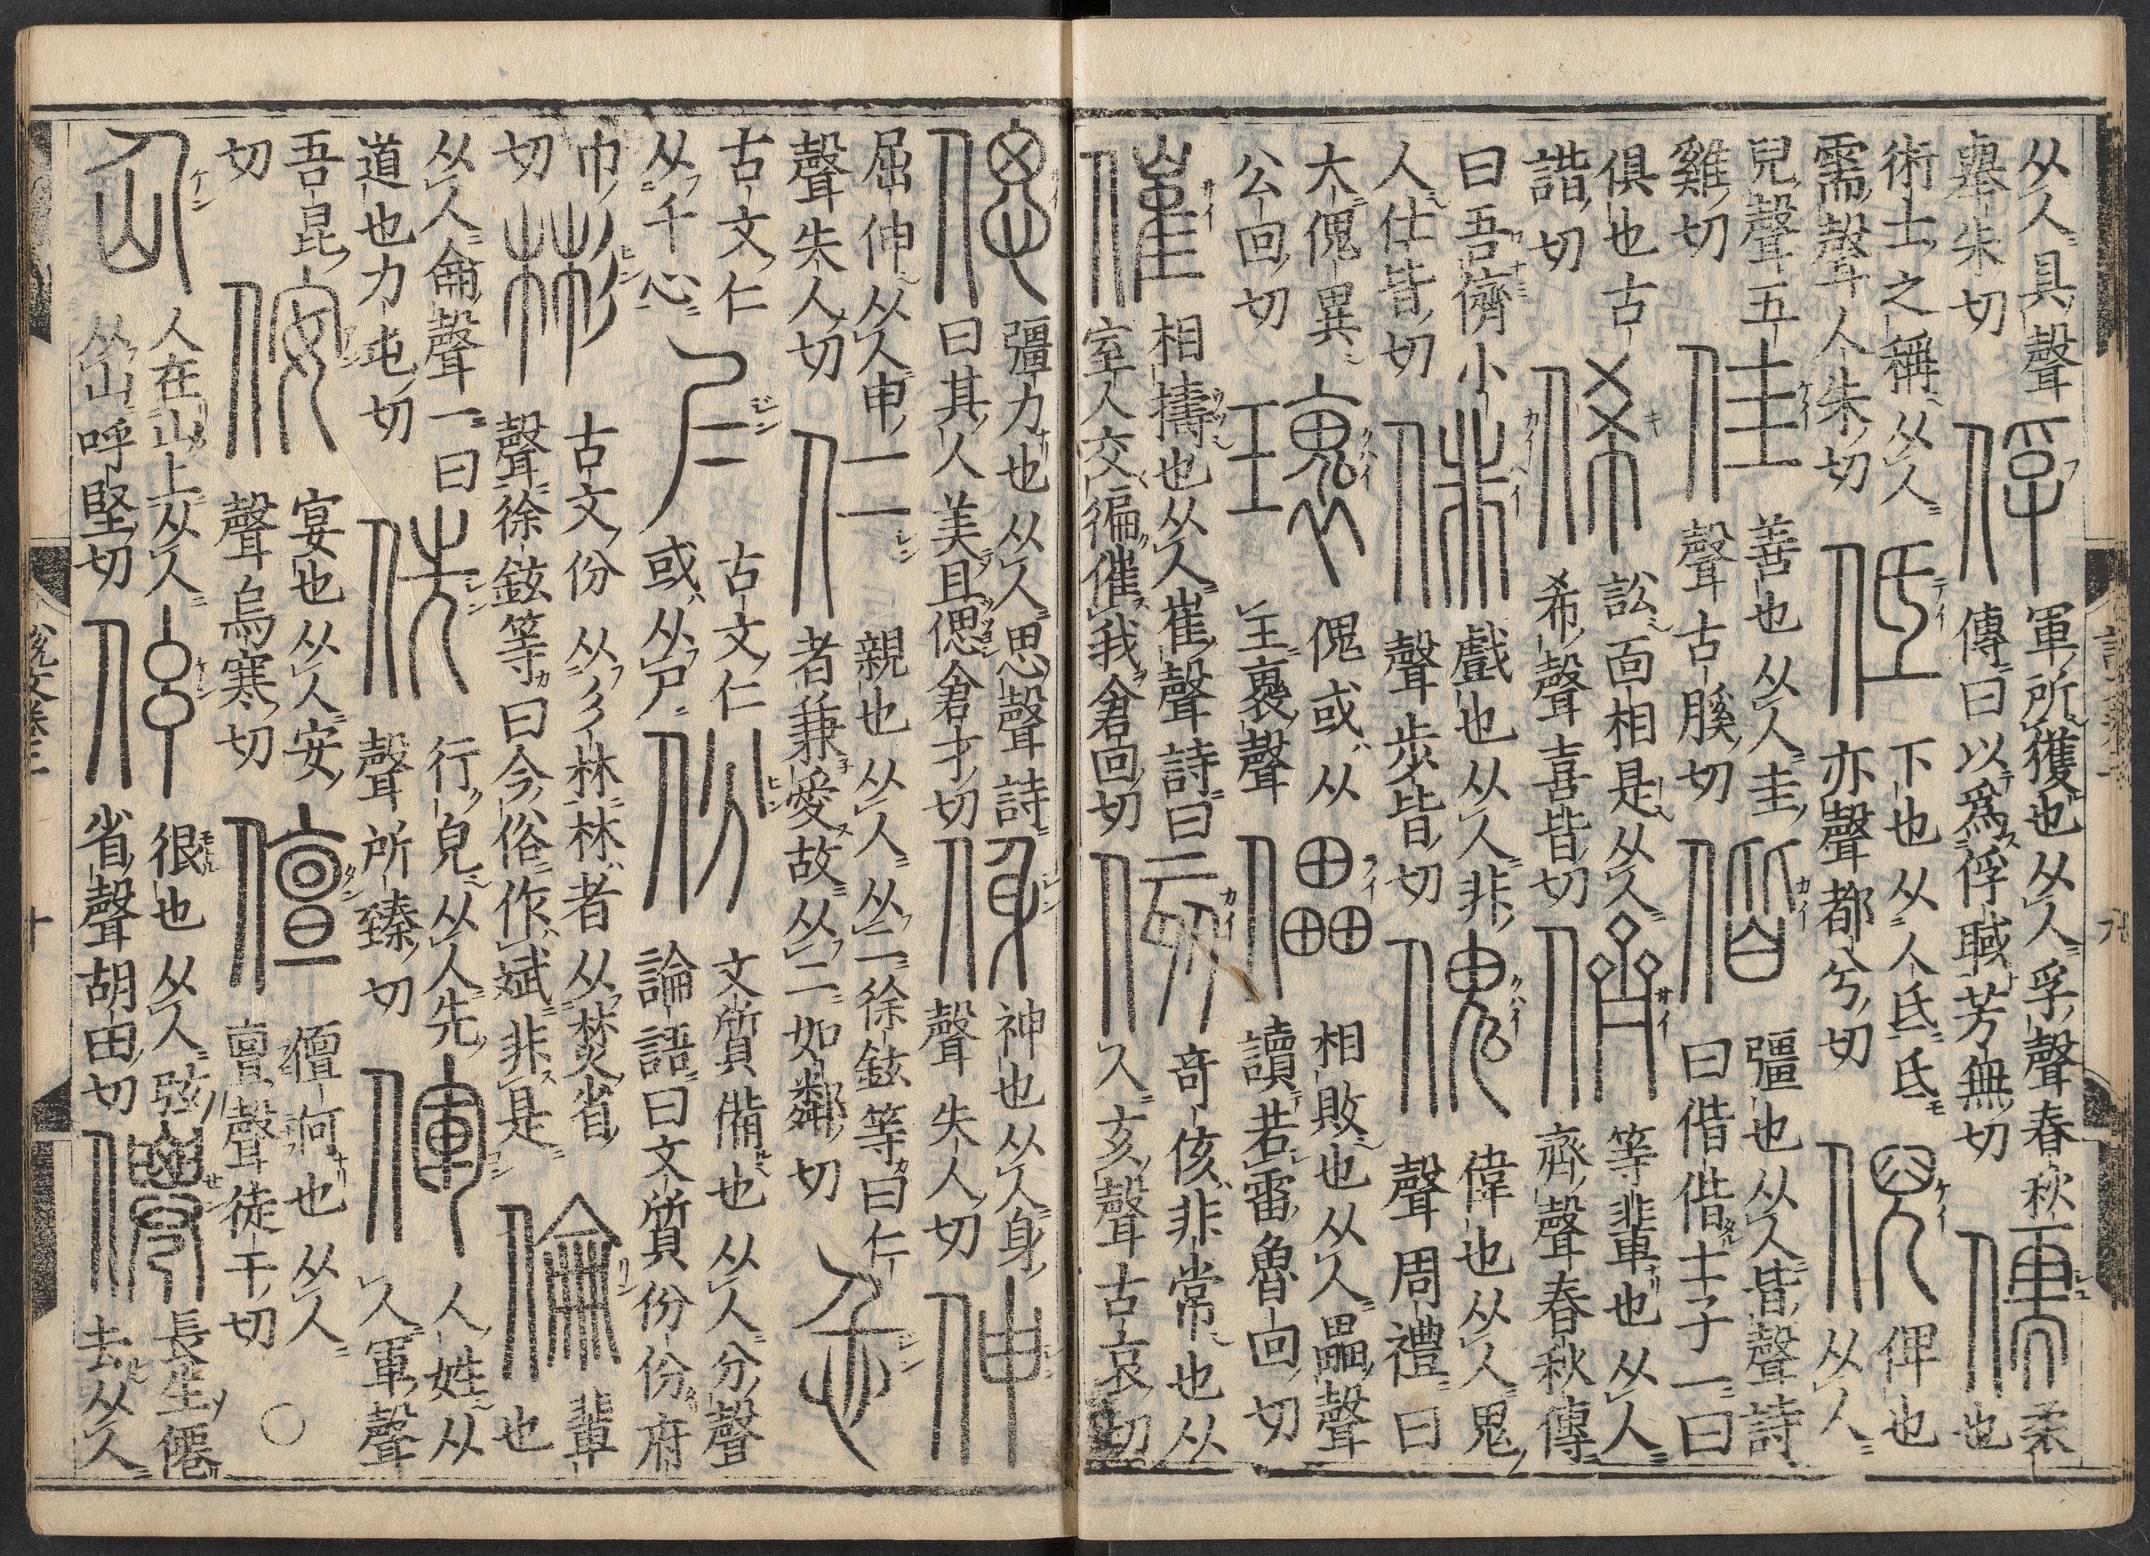 从人具聲
舉朱切
俘
軍所獲也从人孚聲春秋
傳曰以爲俘聝芳無切
儒
柔
也
術士之稱从人
需聲人朱切
低
下也从人氐氐
亦聲都兮切
倪
俾也
从人
兒聲五
雞切
佳
善也从人圭
聲古膎切
偕
彊也从人皆聲詩
曰偕偕士子一曰
俱也古
諧切
俙
訟面相是从人
希聲喜皆切
儕
等輩也从人
齊聲春秋傳
曰吾儕小
人仕皆切
俳
戲也从人非
聲步皆切
傀
偉也从人鬼
聲周禮曰
大傀異
公回切
瓌
傀或从
玉褱聲
儡
相敗也从人畾聲
讀若雷魯回切
催
相擣也从人崔聲詩曰
室人交徧催我倉回切
侅
奇侅非常也从
人亥聲古哀切
偲
彊力也从人思聲詩
曰其人美且偲倉才切
㑗
神也从人身
聲失人切
伸
屈伸从人申
聲失人切
仁
親也从人从二徐鉉等曰仁
者兼愛故从二如鄰切
忎
古文仁
从千心
𡰥
古文仁
或从尸
份
文質備也从人分聲
論語曰文質份份府
巾
切
彬
古文份从彡林林者从焚省
聲徐鉉等曰今俗作斌非是
倫
輩
也
从人侖聲一曰
道也力屯切
侁
行皃从人先
聲所臻切
㑮
人姓从
人軍聲
吾昆
切
侒
宴也从人安
聲烏寒切
儃
儃何也从人
亶聲徒干切
○
仚
人在山上从人
从山呼堅切
伭
很也从人弦
省聲胡田切
僊
長生僊
去从人
說文卷三
十